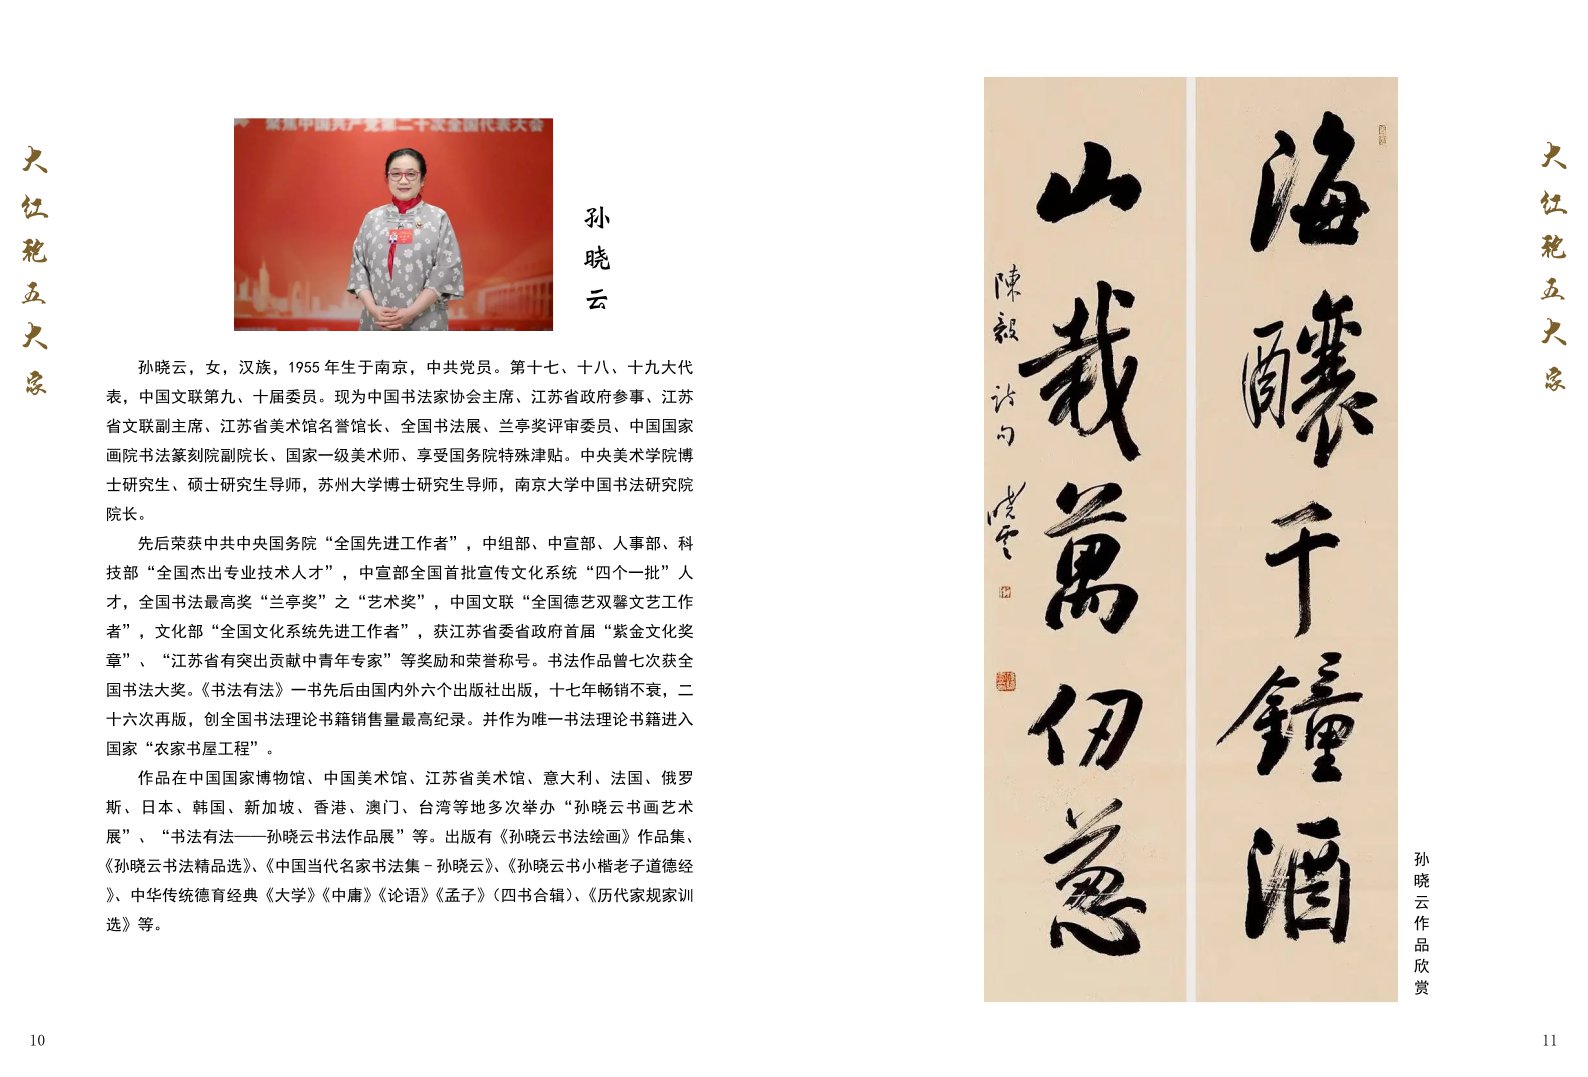 大红袍五大家
聚焦中国共产党第二十次全国代表大会
孙晓云
孙晓云，女，汉族，1955 年生于南京，中共党员。第十七、十八、十九大代
表，中国文联第九、十届委员。现为中国书法家协会主席、江苏省政府参事、江苏
省文联副主席、江苏省美术馆名誉馆长、全国书法展、兰亭奖评审委员、中国国家
画院书法篆刻院副院长、国家一级美术师、享受国务院特殊津贴。中央美术学院博
士研究生、硕士研究生导师，苏州大学博士研究生导师，南京大学中国书法研究院
院长。
先后荣获中共中央国务院“全国先进工作者”，中组部、中宣部、人事部、科
技部“全国杰出专业技术人才”，中宣部全国首批宣传文化系统“四个一批”人
才，全国书法最高奖“兰亭奖”之“艺术奖”，中国文联“全国德艺双馨文艺工作
者”，文化部“全国文化系统先进工作者”，获江苏省委省政府首届“紫金文化奖
章”、“江苏省有突出贡献中青年专家”等奖励和荣誉称号。书法作品曾七次获全
国书法大奖。《书法有法》一书先后由国内外六个出版社出版，十七年畅销不衰，二
十六次再版，创全国书法理论书籍销售量最高纪录。并作为唯一书法理论书籍进入
国家“农家书屋工程”。
作品在中国国家博物馆、中国美术馆、江苏省美术馆、意大利、法国、俄罗
斯、日本、韩国、新加坡、香港、澳门、台湾等地多次举办“孙晓云书画艺术
展”、“书法有法——孙晓云书法作品展”等。出版有《孙晓云书法绘画》作品集、
《孙晓云书法精品选》、《中国当代名家书法集－孙晓云》、《孙晓云书小楷老子道德经
》、中华传统德育经典《大学》《中庸》《论语》《孟子》（四书合辑）、《历代家规家训
选》等。
10
海釀千鐘酒
山栽萬仞葱
陳毅詩句
晓雲
孙晓云作品欣赏
大红袍五大家
11